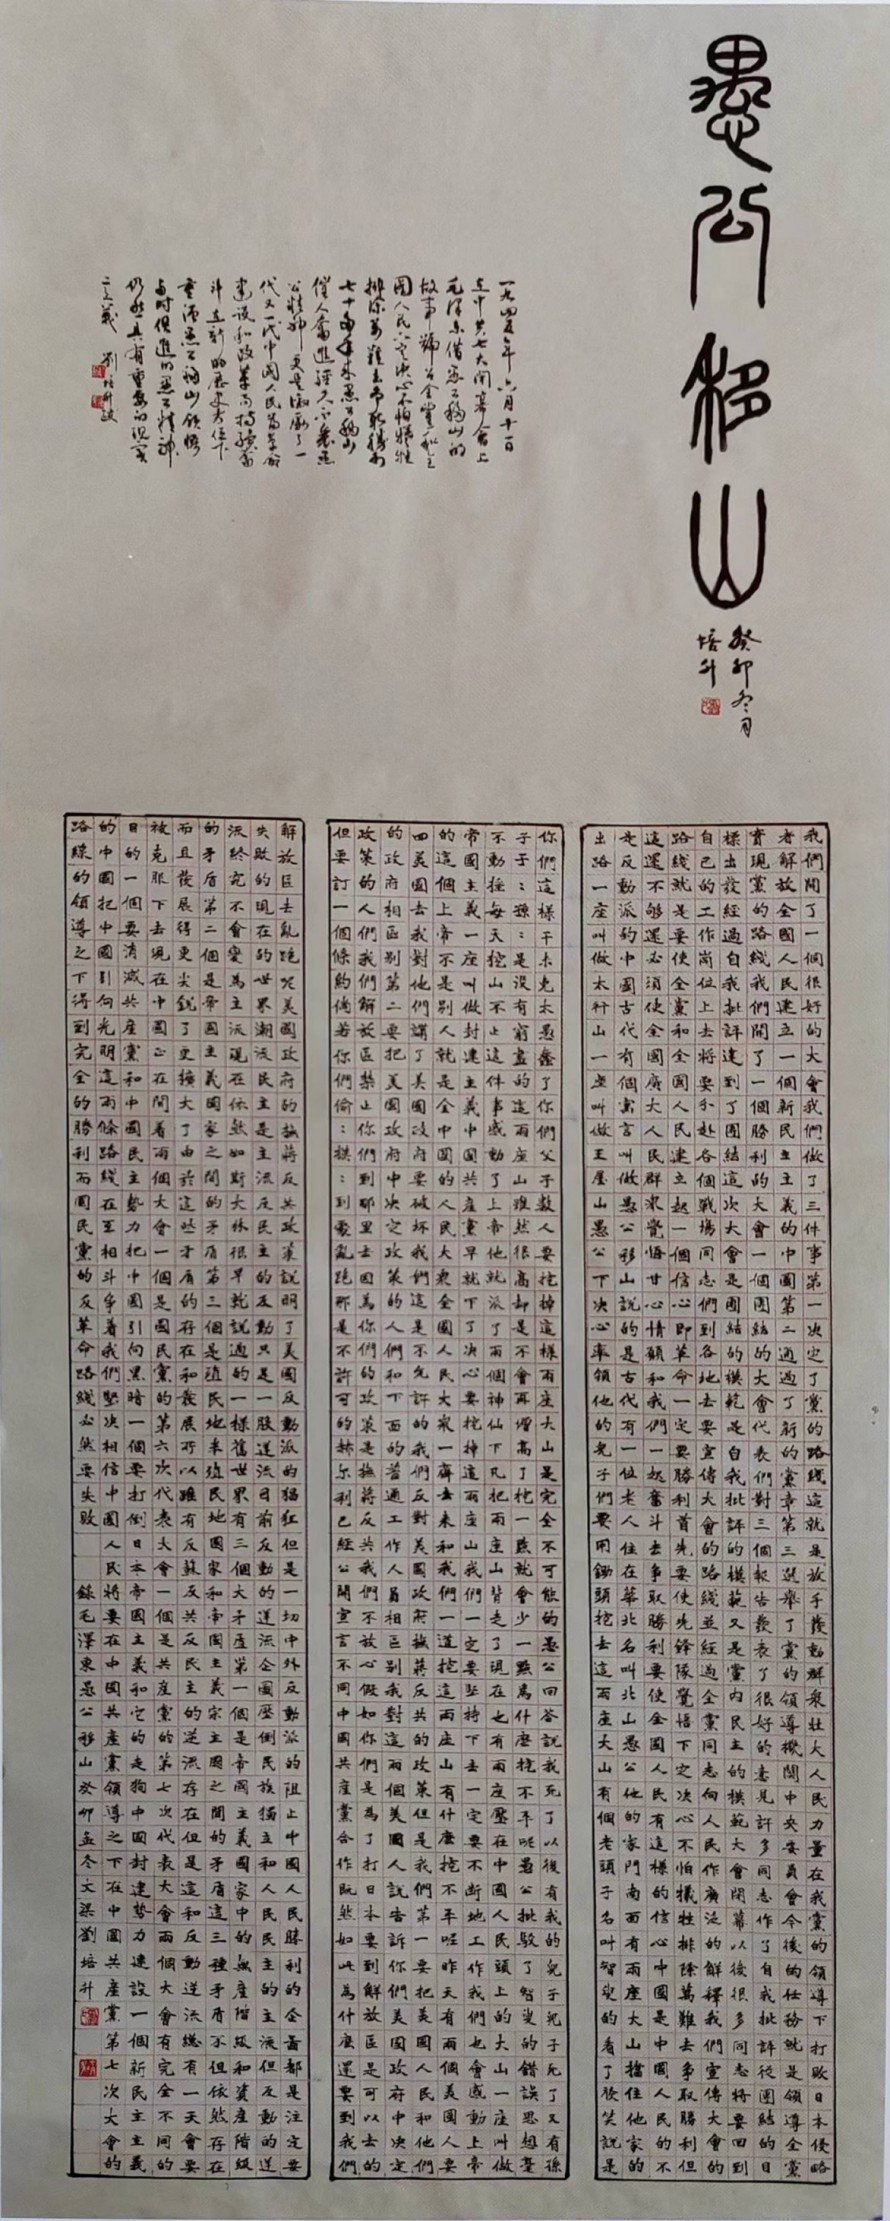 愚公移山
癸卯冬月
培升
一九四五年六月十一日
在中共七大閉幕會上
毛澤東借愚公移山的
故事號召全黨和全
國人民下定決心不怕犧牲
排除萬難去爭取勝利
七十多年來愚公移山
催人奮進經久不衰愚
公精神更是激勵了一
代又一代中國人民為革命
建設和改革而持續奮
斗在新的歷史方位下
重溫愚公移山領悟
與時俱進的愚公精神
仍然具有重要的現實
意義 劉培升
我們開了一個很好的大會我們做了三件事第一決定了黨的路綫這就是放手發動群衆壯大人民力量在我黨的領導下打敗日本侵略
者解放全國人民建立一個新民主主義的中國第二通過了新的黨章第三選舉了黨的領導機關中央委員會今後的任務就是領導全黨
實現黨的路綫我們開了一個勝利的大會一個團結的大會代表們對三個報告發表了很好的意見許多同志作了自我批評從團結的目
標出發經過自我批評達到了團結這次大會是團結的模範是自我批評的模範又是黨內民主的模範大會閉幕以後很多同志將要回到
自己的工作崗位上去將要分赴各個戰場同志們到各地去要宣傳大會的路綫並經過全黨同志向人民作廣泛的解釋我們宣傳大會的
路綫就是要使全黨和全國人民建立起一個信心即革命一定要勝利首先要使先鋒隊覺悟下定決心不怕犧牲排除萬難去爭取勝利但
這還不够還必須使全國廣大人民群衆覺悟甘心情願和我們一起奮斗去爭取勝利要使全國人民有這樣的信心中國是中國人民的不
是反動派的中國古代有個寓言叫做愚公移山說的是古代有一位老人住在華北名叫北山愚公他的家門南面有兩座大山擋住他家的
出路一座叫做太行山一座叫做王屋山愚公下決心率領他的兒子們要用鋤頭挖去這兩座大山有個老頭子名叫智叟的看了發笑說是
你們這樣干未免太愚蠢了你們父子數人要挖掉這樣兩座大山是完全不可能的愚公回答說我死了以後有我的兒子兒子死了又有孫
子子：孫：是沒有窮盡的這兩座山雖然很高却是不會再增高了挖一點就會少一點為什麼挖不平呢愚公批駁了智叟的錯誤思想毫
不動搖每天挖山不止這件事感動了上帝他就派了兩個神仙下凡把兩座山背走了現在也有兩座壓在中國人民頭上的大山一座叫做
帝國主義一座叫做封建主義中國共產黨早就下了決心要挖掉這兩座山我們一定要堅持下去一定要不斷地工作我們也會感動上帝
的這個上帝不是別人就是全中國的人民大衆全國人民大衆一齊起來和我們一道挖這兩座山有什麼挖不平呢昨天有兩個美國人要
回美國去我對他們講了美國政府要破坏我們這是不允許的我們反對美國政府扶蔣反共的政策但是我們第一要把美國人民和他們
的政府相區別第二要把美國政府中決定政策的人們和下面的普通工作人員相區別我對這兩個美國人說告訴你們美國政府中決定
政策的人們我們解放區禁止你們到那里去因為你們的政策是扶蔣反共我們不放心假如你們是為了打日本要到解放區是可以去的
但要訂一個條約倘若你們偷：摸：到處亂跑那是不許可的赫尔利已經公開宣言不同中國共產黨合作既然如此為什麼還要到我們
解放區去亂跑呢美國政府的扶蔣反共政策說明了美國反動派的猖狂但是一切中外反動派的阻止中國人民勝利的企圖都是注定要
失敗的現在的世界潮流民主是主流反民主的反動只是一股逆流目前反動的逆流企圖壓倒民族獨立和人民民主的主流但反動的逆
流終究不會變為主流現在依然如斯大林很早就說過的一樣舊世界有三個大矛盾第一個是帝國主義國家中的無產階級和資產階級
的矛盾第二個是帝國主義國家之間的矛盾第三個是殖民地半殖民地國家和帝國主義宗主國之間的矛盾這三種矛盾不但依然存在
而且發展得更尖銳了更擴大了由於這些矛盾的存在和發展所以雖有反蘇反共反民主的逆流存在但是這和反動逆流總有一天會要
被克服下去現在中國正在開着兩個大會一個是國民黨的第六次代表大會一個是共產黨的第七次代表大會兩個大會有完全不同的
目的一個要消滅共產黨和中國民主勢力把中國引向黑暗一個要打倒日本帝國主義和它的走狗中國封建勢力建設一個新民主主義
的中國把中國引向光明這兩條路綫在互相斗爭着我們堅決相信中國人民將要在中國共產黨領導之下在中國共產黨第七次大會的
路綫的領導之下得到完全的勝利而國民黨的反革命路綫必然要失敗 錄毛澤東愚公移山癸卯孟冬文梁劉培升